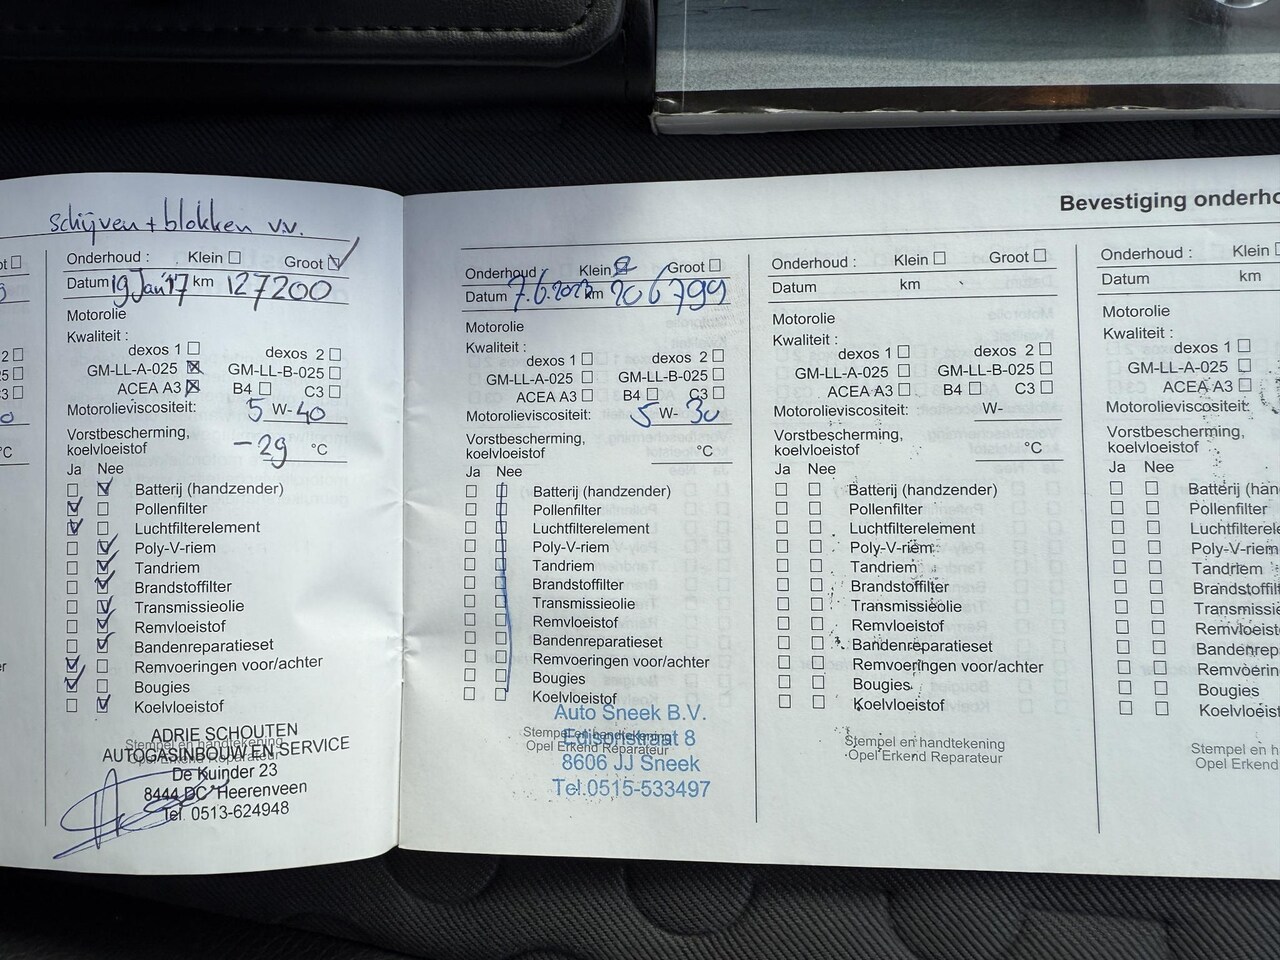 schijven + blokken v.v.
Onderhoud : Klein Groot
Datum 19 Jan '17 km 127200
Motorolie
Kwaliteit :
dexos 1 dexos 2
GM-LL-A-025 GM-LL-B-025
ACEA A3 B4 C3
Motorolieviscositeit: 5 W- 40
Vorstbescherming,
koelvloeistof -29 °C
Ja Nee
Batterij (handzender)
Pollenfilter
Luchtfilterelement
Poly-V-riem
Tandriem
Brandstoffilter
Transmissieolie
Remvloeistof
Bandenreparatieset
Remvoeringen voor/achter
Bougies
Koelvloeistof
ADRIE SCHOUTEN
Stempel en handtekening
AUTOGASINBOUW EN SERVICE
Opel Erkend Reparateur
De Kuinder 23
8444 DC Heerenveen
Tel. 0513-624948
Bevestiging onderho
Onderhoud Klein Groot
Datum 7.6.2023 km 206799
Motorolie
Kwaliteit :
dexos 1 dexos 2
GM-LL-A-025 GM-LL-B-025
ACEA A3 B4 C3
Motorolieviscositeit: 5 W- 30
Vorstbescherming,
koelvloeistof °C
Ja Nee
Batterij (handzender)
Pollenfilter
Luchtfilterelement
Poly-V-riem
Tandriem
Brandstoffilter
Transmissieolie
Remvloeistof
Bandenreparatieset
Remvoeringen voor/achter
Bougies
Koelvloeistof
Auto Sneek B.V.
Stempel en handtekening
Edisonstraat 8
Opel Erkend Reparateur
8606 JJ Sneek
Tel.0515-533497
Onderhoud : Klein Groot
Datum km
Motorolie
Kwaliteit :
dexos 1 dexos 2
GM-LL-A-025 GM-LL-B-025
ACEA A3 B4 C3
Motorolieviscositeit: W-
Vorstbescherming,
koelvloeistof °C
Ja Nee
Batterij (handzender)
Pollenfilter
Luchtfilterelement
Poly-V-riem
Tandriem
Brandstoffilter
Transmissieolie
Remvloeistof
Bandenreparatieset
Remvoeringen voor/achter
Bougies
Koelvloeistof
Stempel en handtekening
Opel Erkend Reparateur
Onderhoud : Klein
Datum km
Motorolie
Kwaliteit :
dexos 1
GM-LL-A-025
ACEA A3
Motorolieviscositeit:
Vorstbescherming,
koelvloeistof
Ja Nee
Batterij (han
Pollenfilter
Luchtfilterele
Poly-V-riem
Tandriem
Brandstoffilt
Transmissie
Remvloeist
Bandenrep
Remvoerin
Bougies
Koelvloeist
Stempel en h
Opel Erkend